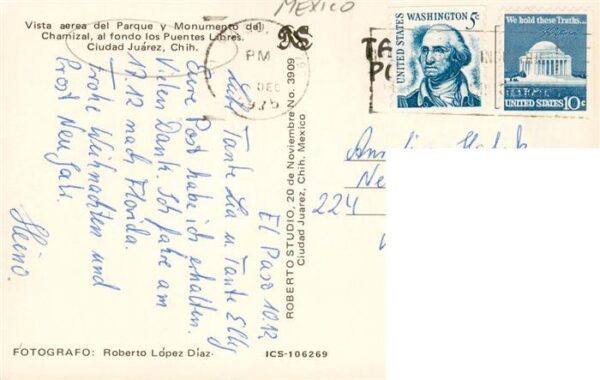 MEXICO
Vista aerea del Parque y Monumento del
Chamizal, al fondo los Puentes Libres.
Ciudad Juárez, Chih.
PM
DEC
WASHINGTON 5c
UNITED STATES
We hold these Truths...
UNITED STATES 10c
El Paso 10.12.
Tante Lia u. Tante Elly
Eure Post habe ich erhalten.
Vielen Dank. Ich fahre am
17.12 nach Florida.
Frohe Weihnachten und
Prost Neujahr.
Heino.
ROBERTO STUDIO, 20 de Noviembre No. 3909
Ciudad Juarez, Chih. Mexico
224
FOTOGRAFO: Roberto López Díaz
ICS-106269